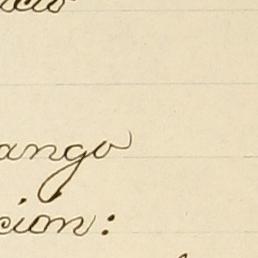 icio
ango
ción: